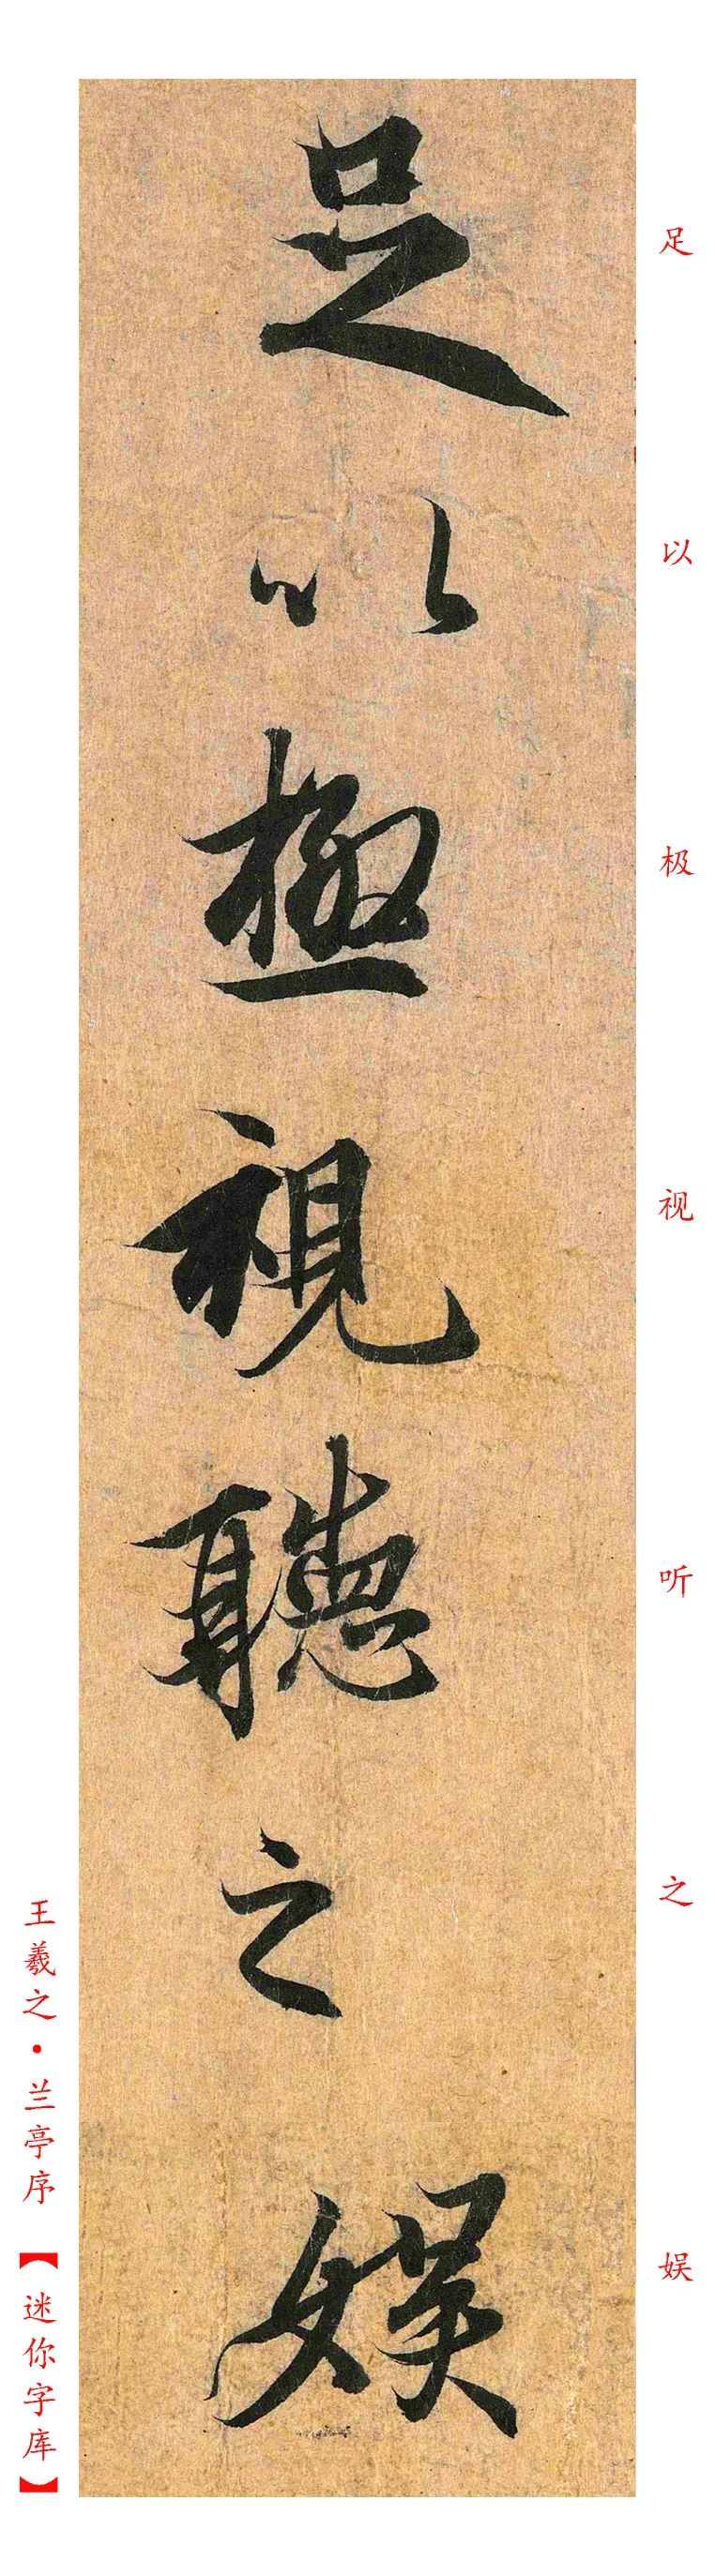 足以極視聽之娱
足以极视听之娱
王羲之·兰亭序【迷你字库】